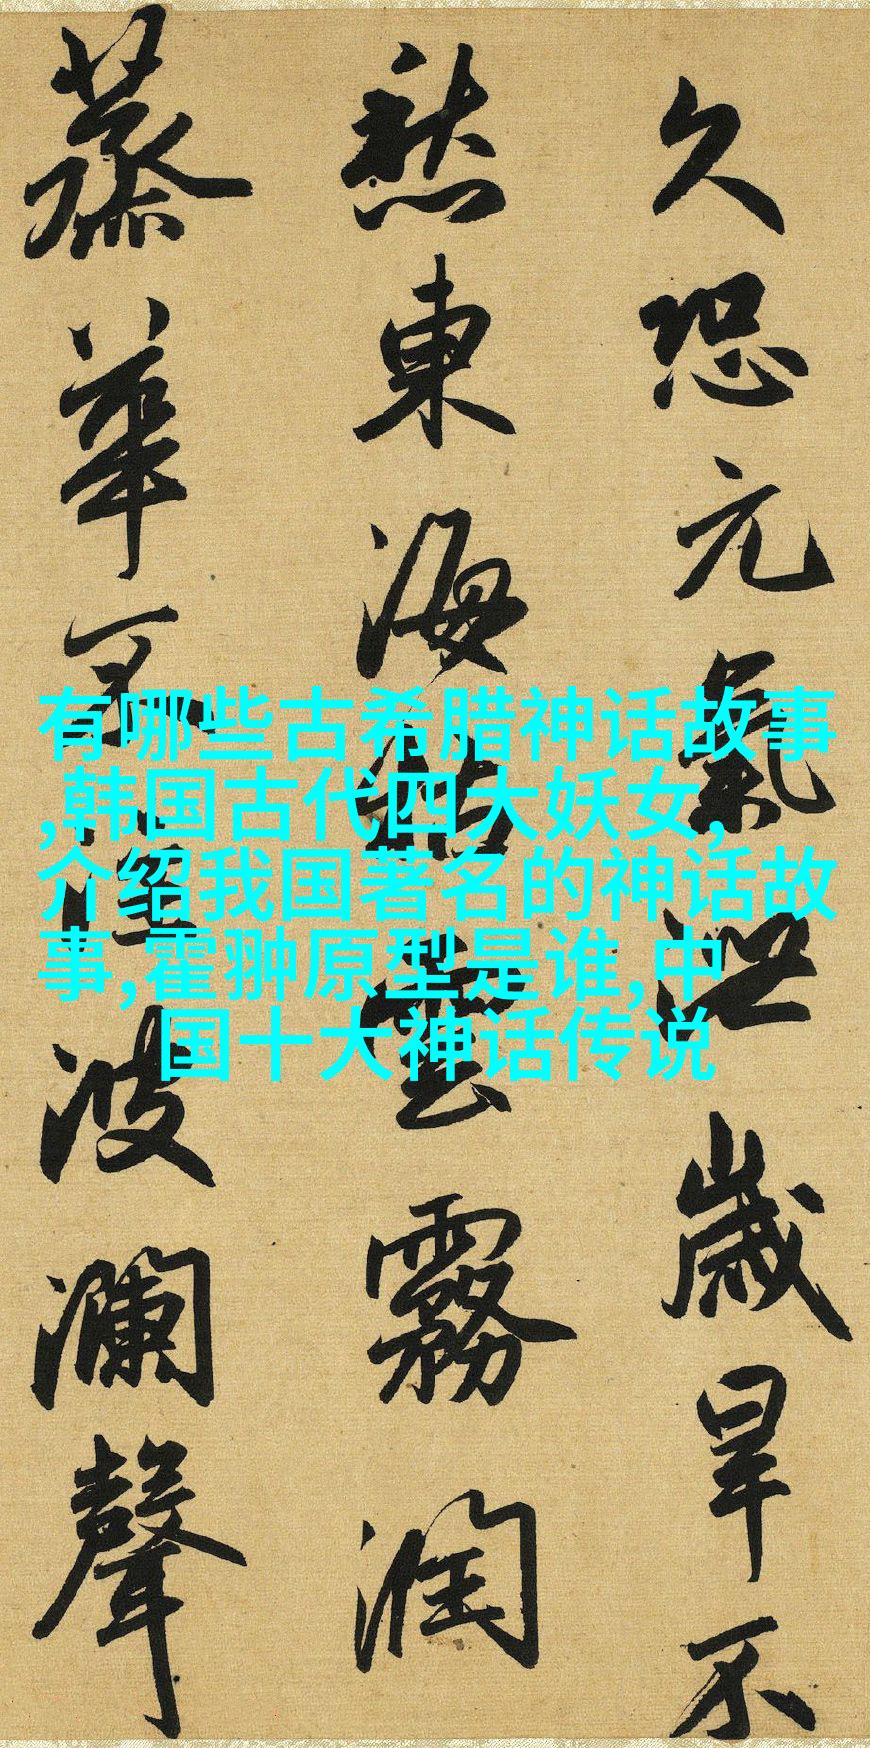 久恐元氣泄歲旱不
愁東海枯雲霧潤
蒸華不注波瀾聲
有哪些古希腊神话故事
,韩国古代四大妖女,
介绍我国著名的神话故
事,霍翀原型是谁,中
国十大神话传说